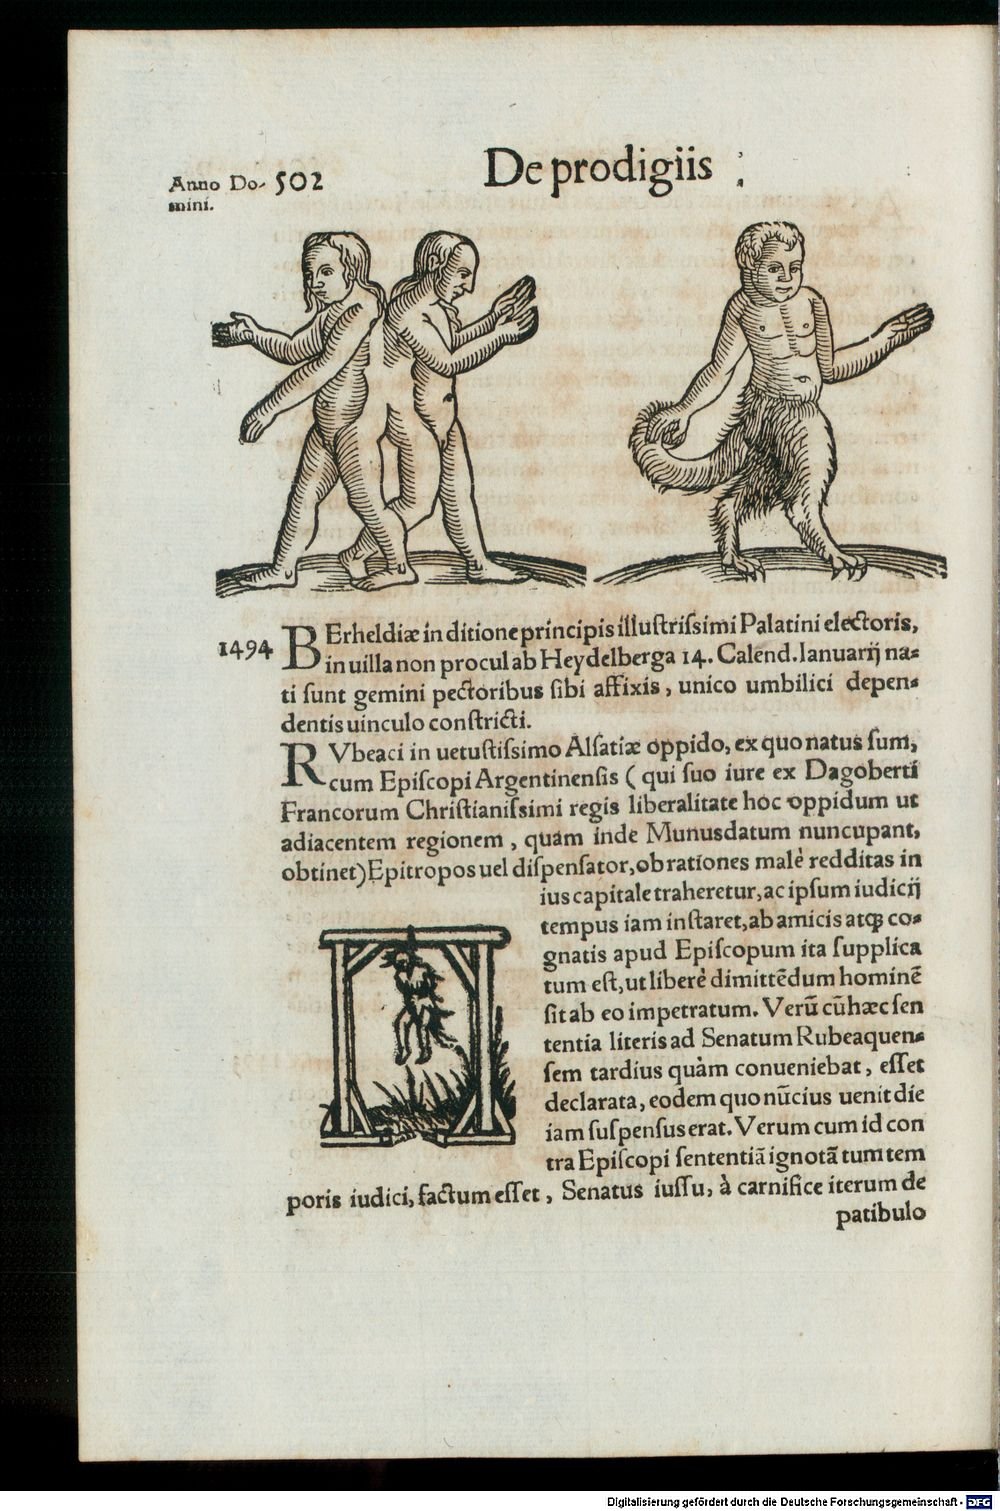 Anno Do- 502
mini.
De prodigiis
1494 BErheldiæ in ditione principis illuſtriſsimi Palatini electoris,
in uilla non procul ab Heydelberga 14. Calend. Ianuarij na-
ti ſunt gemini pectoribus ſibi affixis, unico umbilici depen-
dentis uinculo conſtricti.
RVbeaci in uetuſtiſsimo Alſatiæ oppido, ex quo natus ſum,
cum Epiſcopi Argentinenſis ( qui ſuo iure ex Dagoberti
Francorum Chriſtianiſsimi regis liberalitate hoc oppidum ut
adiacentem regionem, quam inde Munusdatum nuncupant,
obtinet) Epitropos uel diſpenſator, ob rationes malè redditas in
ius capitale traheretur, ac ipſum iudicij
tempus iam inſtaret, ab amicis atq; co-
gnatis apud Epiſcopum ita ſupplica
tum eſt, ut liberè dimittẽdum hominẽ
ſit ab eo impetratum. Verũ cũ hæc ſen
tentia literis ad Senatum Rubeaquen-
ſem tardius quàm conueniebat, eſſet
declarata, eodem quo nũcius uenit die
iam ſuſpenſus erat. Verum cum id con
tra Epiſcopi ſententiã ignotã tum tem
poris iudici, factum eſſet, Senatus iuſſu, à carnifice iterum de
patibulo
Digitalisierung gefördert durch die Deutsche Forschungsgemeinschaft - DFG